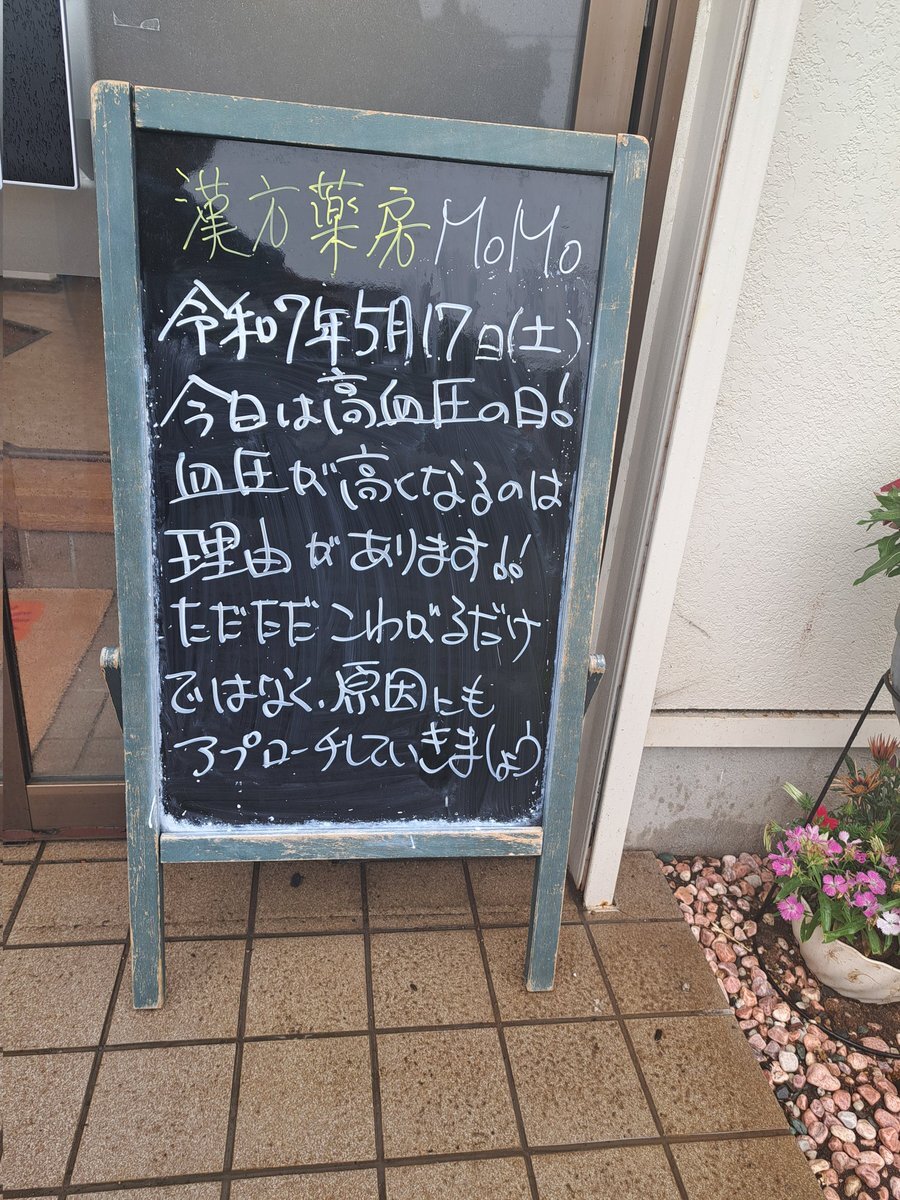 漢方薬房 MoMo
令和7年5月17日(土)
今日は高血圧の日!
血圧が高くなるのは
理由があります!!
ただただこわがるだけ
ではなく、原因にも
アプローチしていきましょう